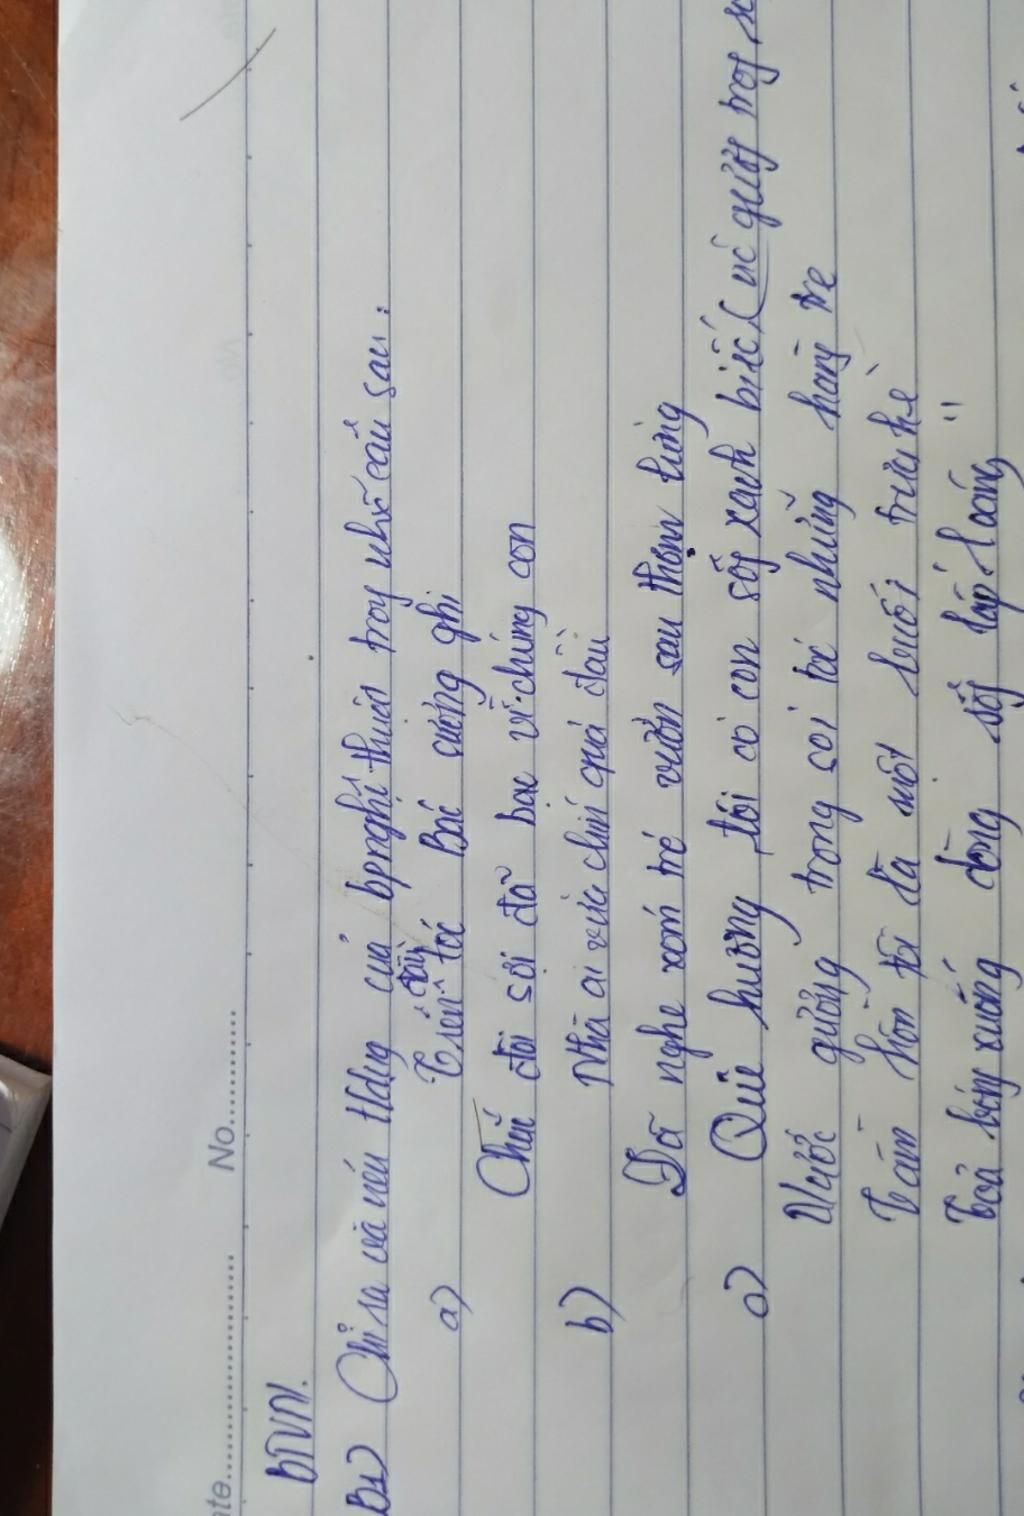 No..............
BTVN.
B1) Chỉ ra và nêu t/dụng của bpnghệ thuật trog những câu sau:
a) Trên đầu tóc Bác sương ghi
Chắt đời sỏi đá bạc vì chúng con
b) Nhà ai vừa chín quả đầu
Đã nghe xóm trẻ vườn sau thơm lừng
c) Quê hương tôi có con sôg xanh biếc
Nước gương trong soi tóc những hàng tre
Tâm hồn tôi là một buổi trưa hè
Toả bóng xuống dòng sôg lấp loáng"